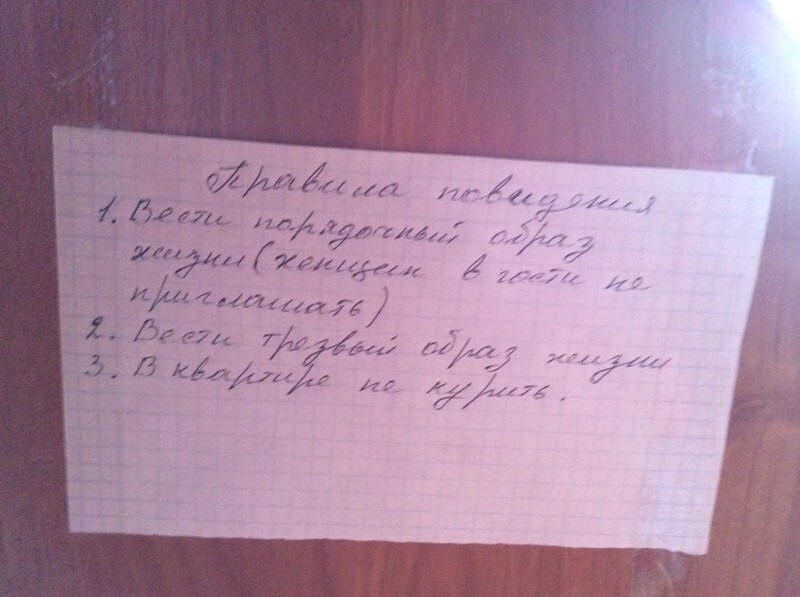 Правила повидения
1. Вести порядочный образ
жизни (женщин в гости не
приглашать)
2. Вести трезвый образ жизни
3. В квартире не курить.